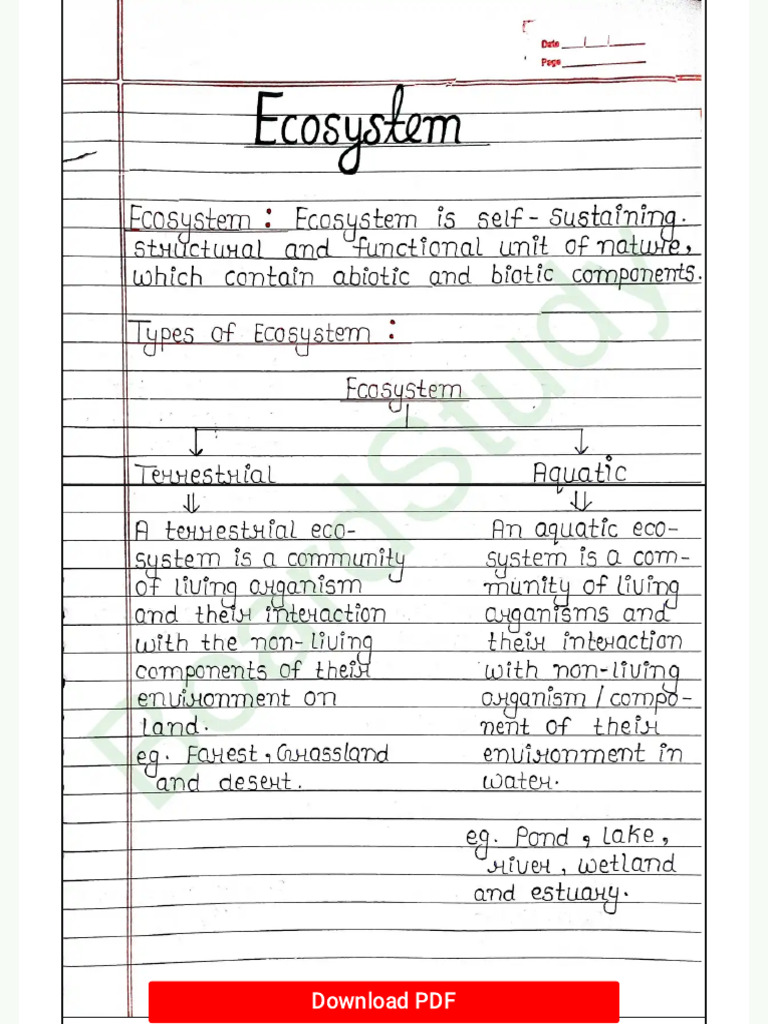 Date
Page
Ecosystem
Ecosystem : Ecosystem is self-sustaining.
structural and functional unit of nature,
which contain abiotic and biotic components.
Types of Ecosystem :
Ecosystem
Terrestrial
Aquatic
A terrestrial eco-
system is a community
of living organism
and their interaction
with the non-living
components of their
environment on
land.
eg. Forest, Grassland
and desert.
An aquatic eco-
system is a com-
munity of living
organisms and
their interaction
with non-living
organism / compo-
nent of their
environment in
water.
eg. Pond, lake,
river, wetland
and estuary.
BoardStudy
Download PDF